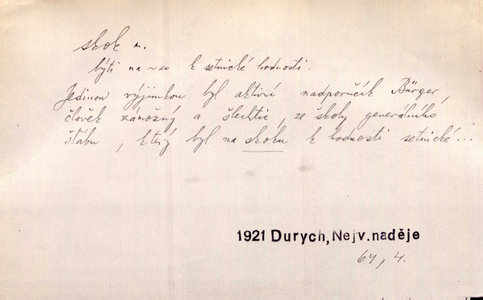 skok m.
býti na ~u k setnické hodnosti.
Jedinou výjimkou byl aktivní nadporučík Bürger,
člověk zámožný a šlechtic, ze školy generálního
štábu, který byl na skoku k hodnosti setnické...
1921 Durych, Nejv. naděje
64, 4.